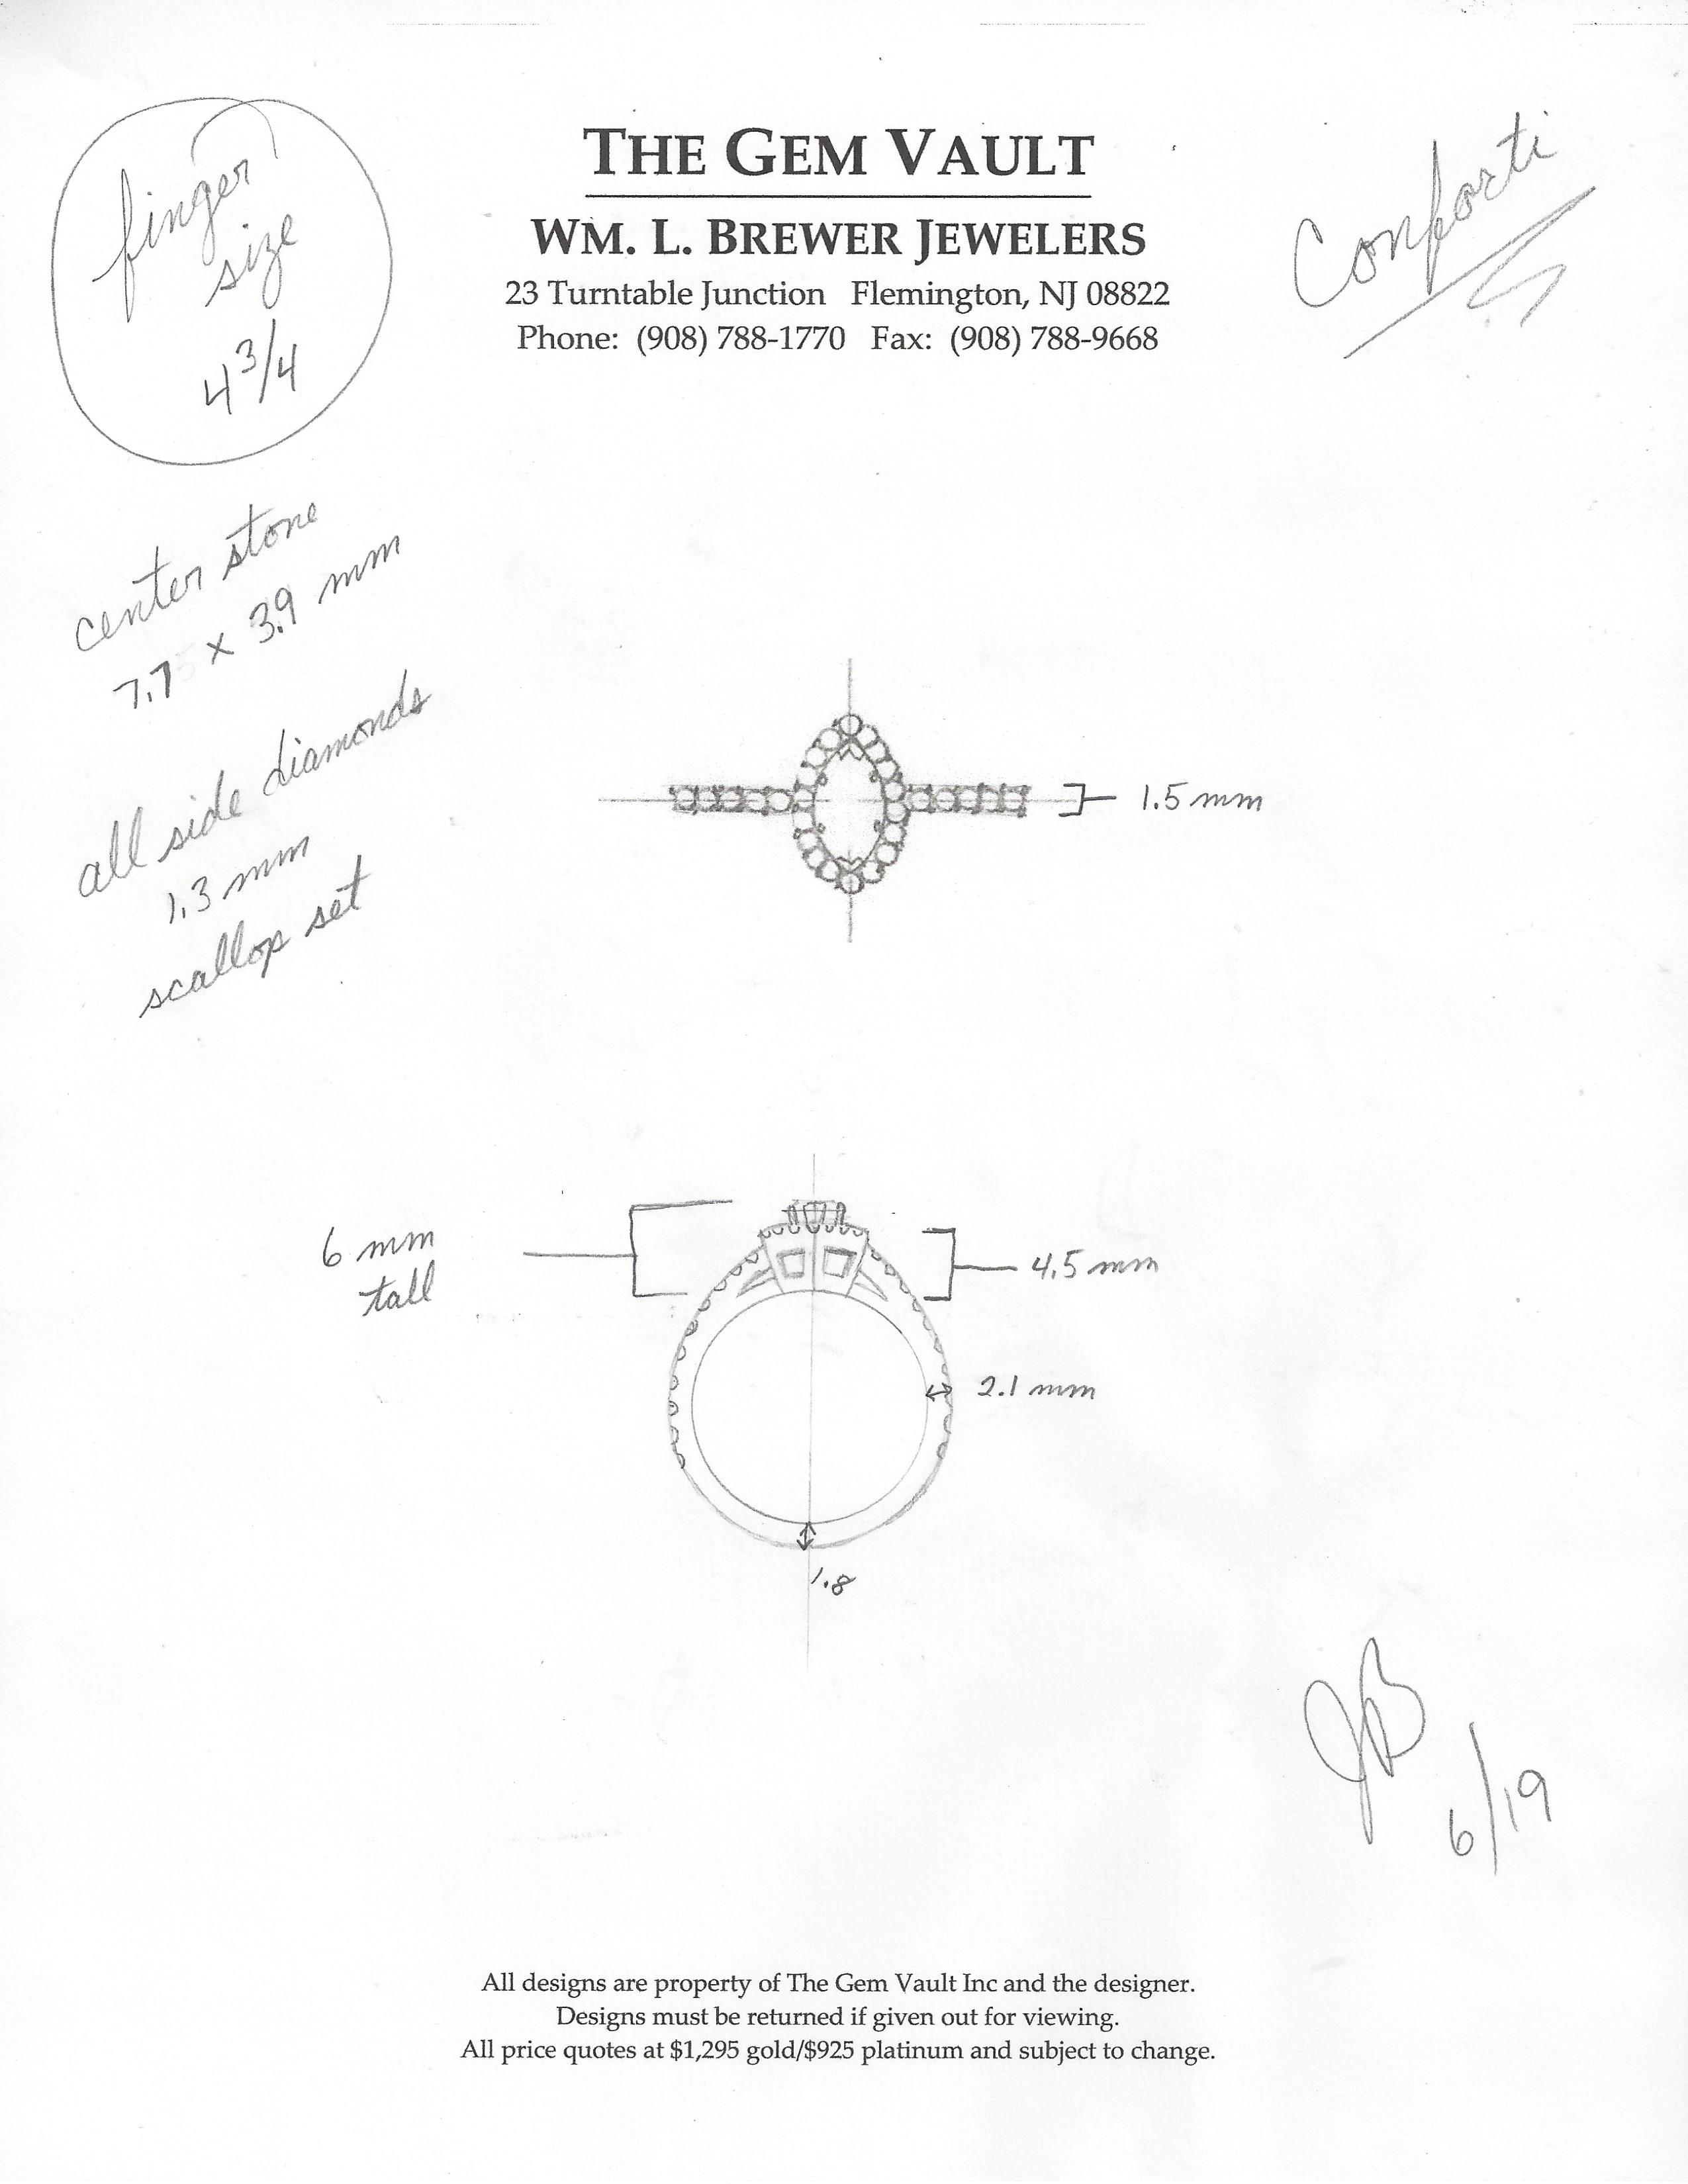 THE GEM VAULT
WM. L. BREWER JEWELERS
23 Turntable Junction Flemington, NJ 08822
Phone: (908) 788-1770 Fax: (908) 788-9668
finger
size
4 3/4
Conforti
center stone
7.7 x 3.9 mm
all side diamonds
1.3 mm
scallop set
1.5 mm
6 mm
tall
4.5 mm
2.1 mm
1.8
JB
6/19
All designs are property of The Gem Vault Inc and the designer.
Designs must be returned if given out for viewing.
All price quotes at $1,295 gold/$925 platinum and subject to change.